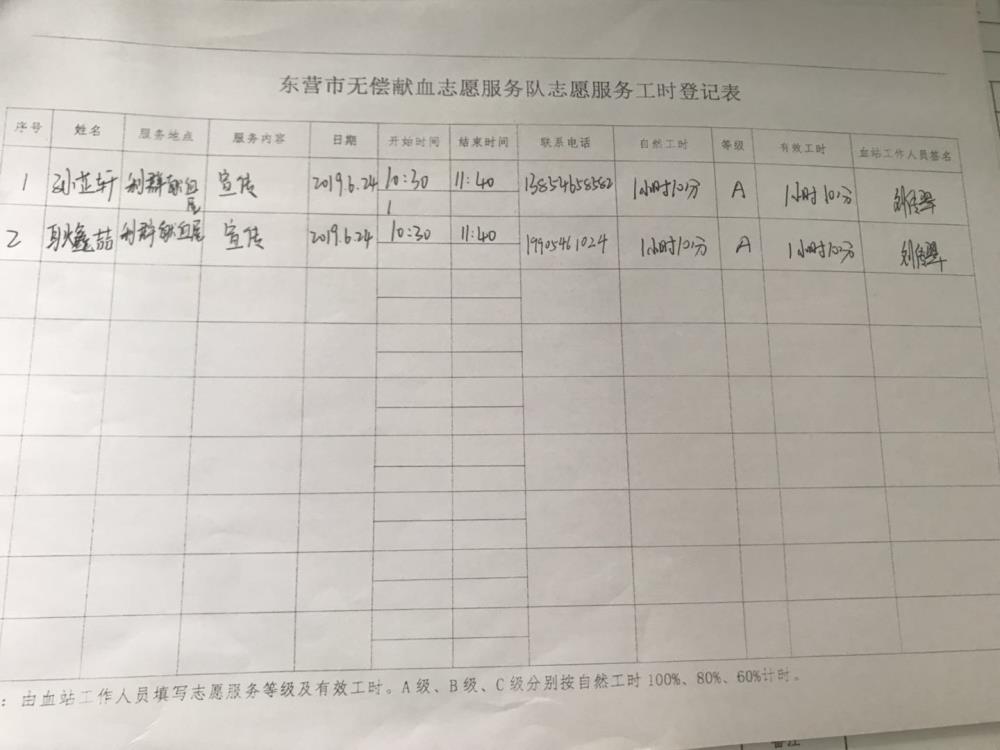 东营市无偿献血志愿服务队志愿服务工时登记表
序号 姓名 服务地点 服务内容 日期 开始时间 结束时间 联系电话 自然工时 等级 有效工时 血站工作人员签名
1 孙芷轩 利群献血屋 宣传 2019.6.24 10:30 11:40 13854658582 1小时10分 A 1小时10分
2 利群献血屋 宣传 2019.6.24 10:30 11:40 19905461024 1小时10分 A 1小时10分
：由血站工作人员填写志愿服务等级及有效工时。A级、B级、C级分别按自然工时100%、80%、60%计时。
备注